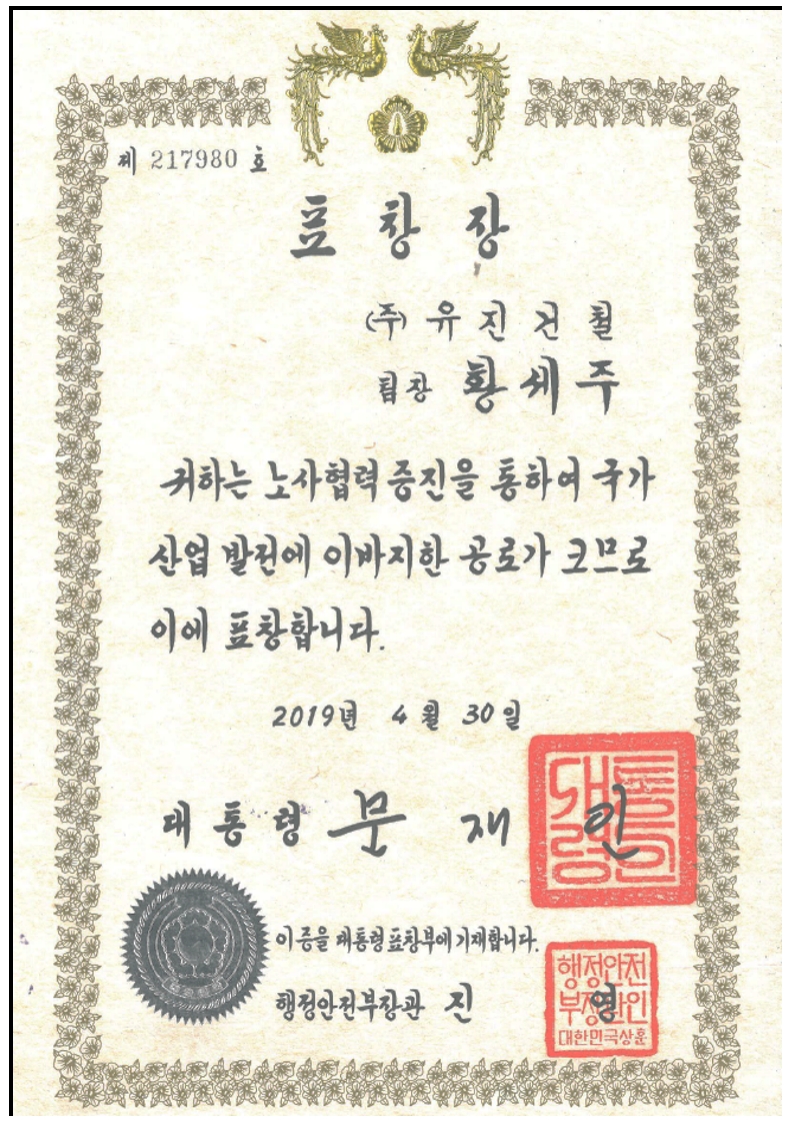 제 217980 호
표창장
(주) 유진건철
팀장 황세주
귀하는 노사협력 증진을 통하여 국가
산업 발전에 이바지한 공로가 크므로
이에 표창합니다.
2019년 4월 30일
대통령 문재인
대통령인
이 증을 대통령표창부에 기재합니다.
행정안전부장관 진영
행정안전
부장관인
대한민국상훈